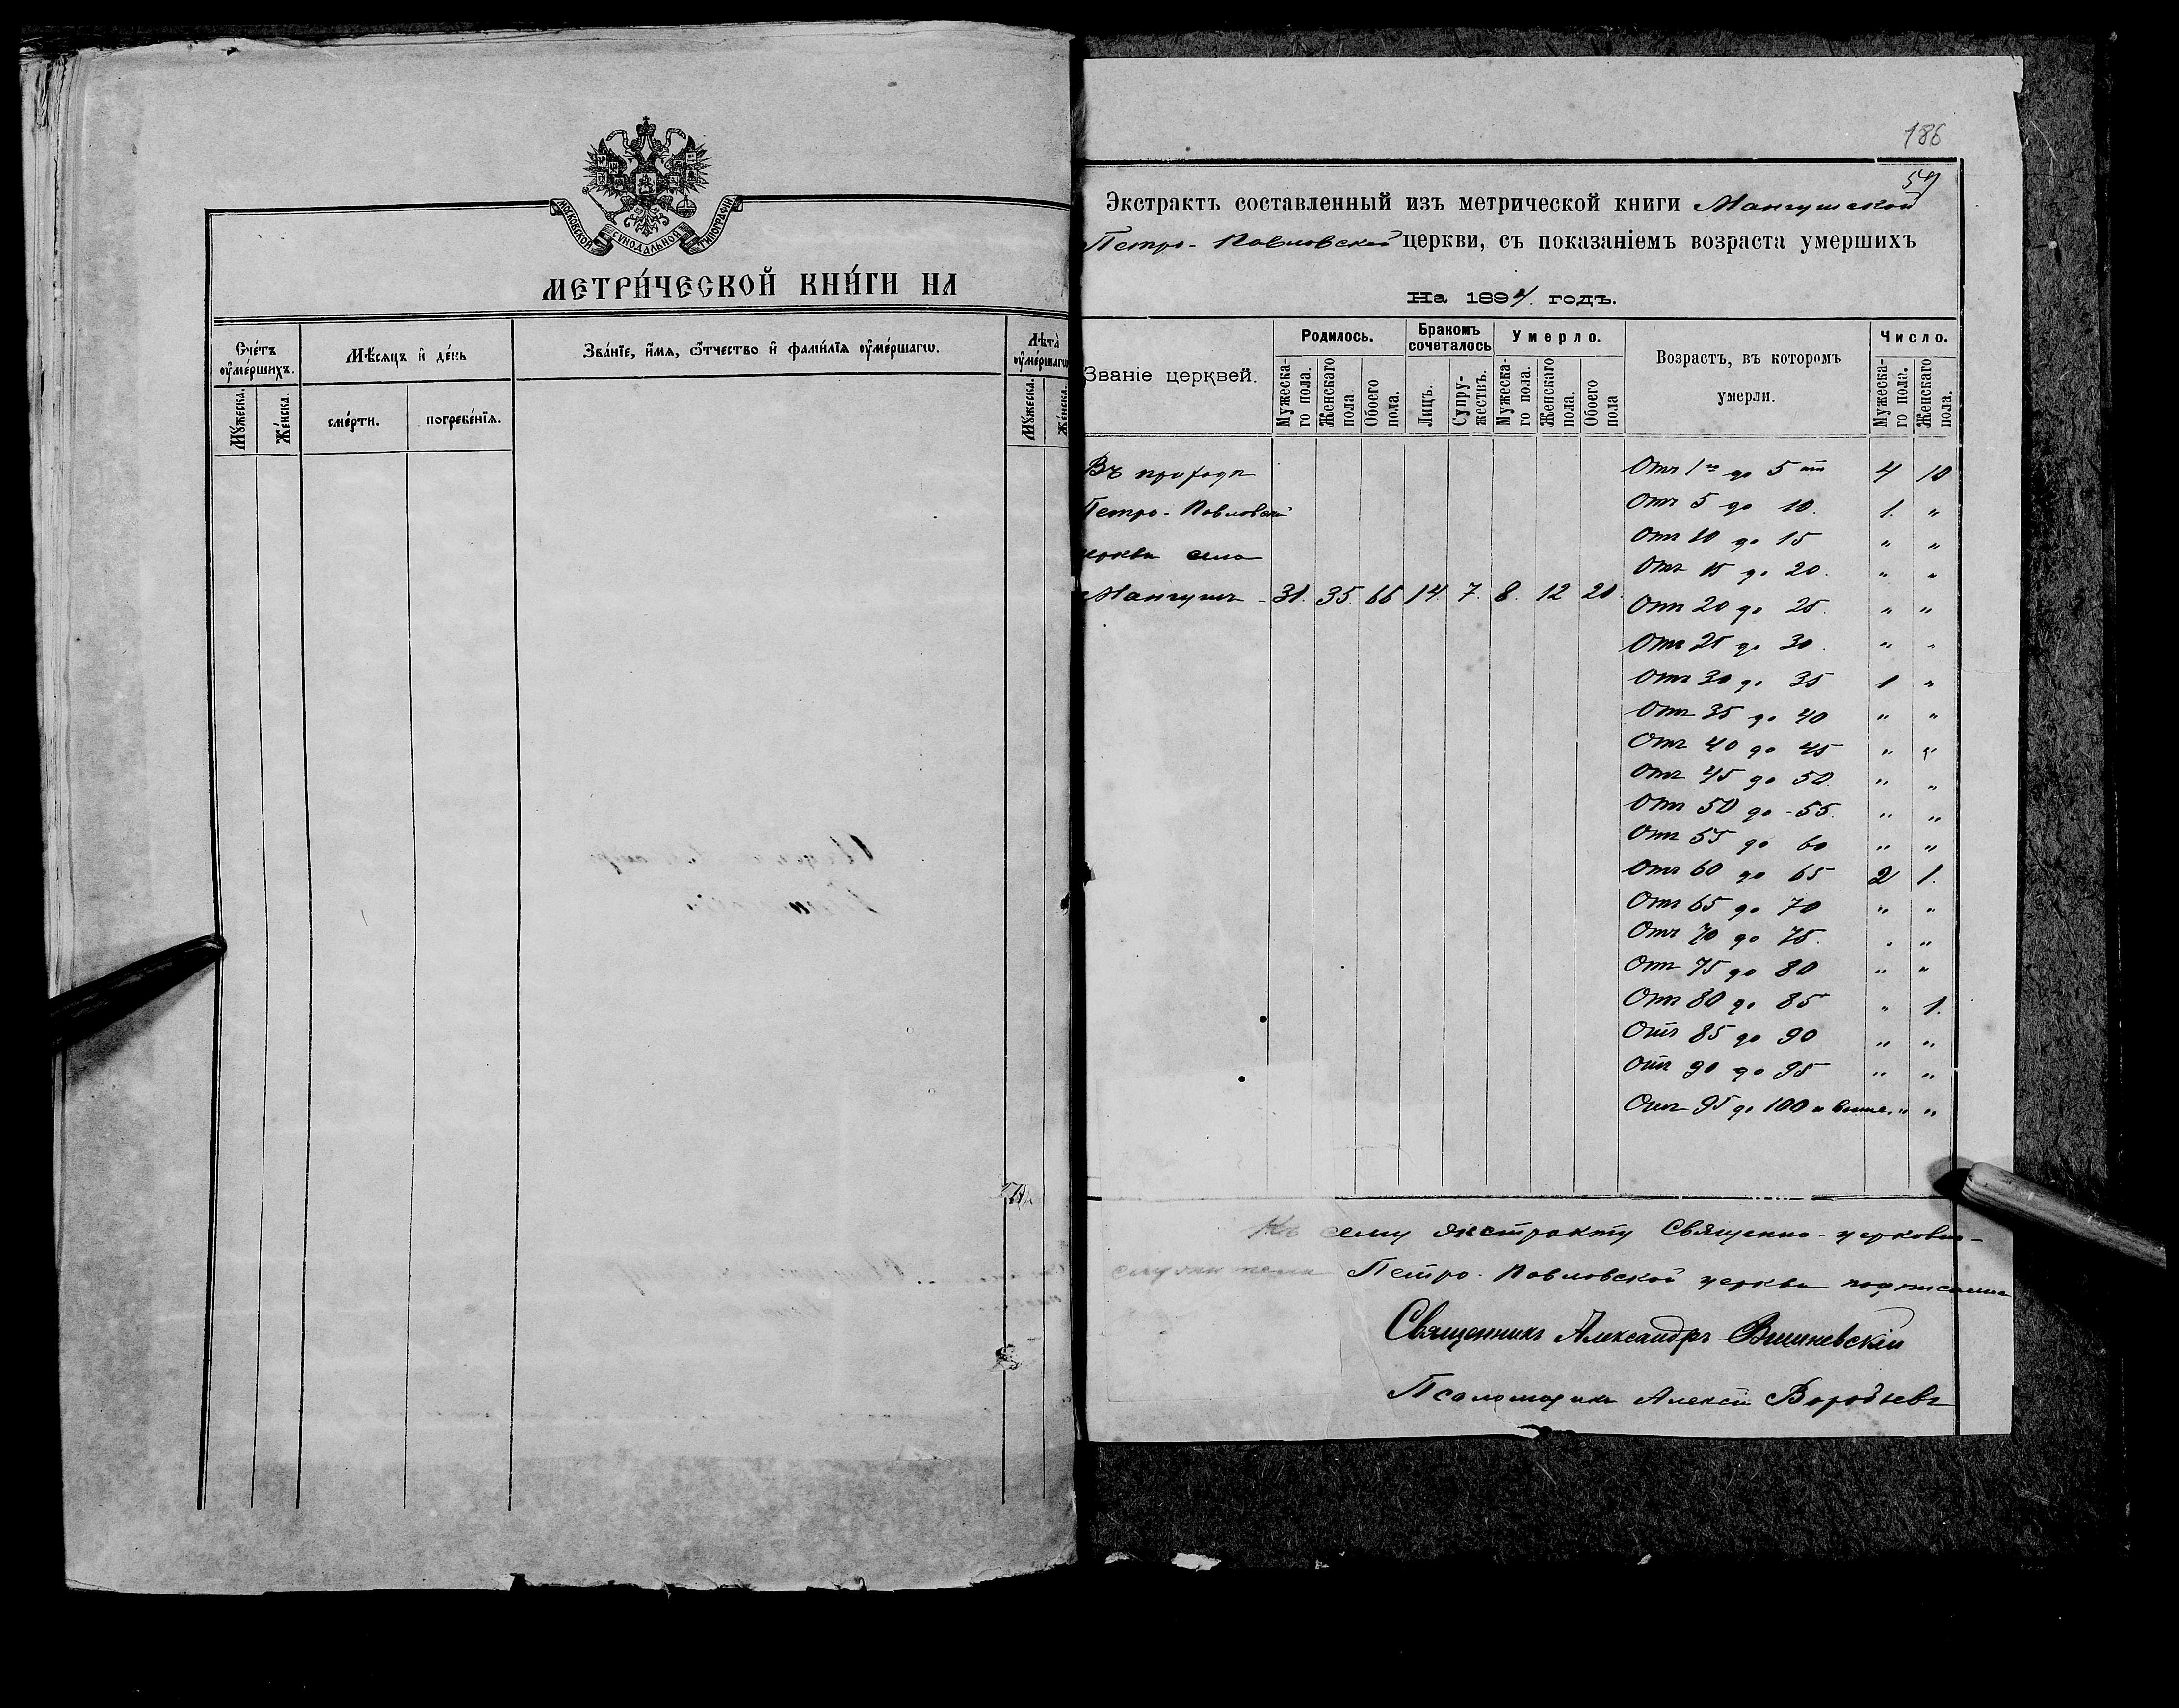 МОСКОВСКОЙ СѴНОДАЛЬНОЙ ТИПОГРАФІИ
МЕТРИ́ЧЕСКОЙ КНИ́ГИ НА
Сче́тъ ᲂу҆ме́ршихъ.
Мꙋ́жеска.
Же́нска.
Мѣ́сѧцъ и҆ де́нь
сме́рти.
погребе́нїѧ.
Зва́нїе, и҆́мѧ, ѻ҆́тчество и҆ фами́лїѧ ᲂу҆ме́ршагѡ.
Лѣ́та ᲂу҆ме́ршагѡ
Мꙋ́жеска.
Же́нска.
186
54
Экстрактъ составленный изъ метрической книги Мангушской
Петро-Павловской церкви, съ показаніемъ возраста умершихъ
На 1894. годъ.
Званіе церквей.
Родилось.
Мужеска-го пола.
Женскаго пола
Обоего пола.
Бракомъ сочеталось
Лицъ.
Супру-жествъ.
Умерло.
Мужеска-го пола.
Женскаго пола.
Обоего пола
Возрастъ, въ которомъ умерли.
Число.
Мужеска-го пола.
Женскаго пола.
Въ приходѣ
Петро-Павловской
церкви села
Мангушъ - 31. 35. 66 14. 7. 8. 12 20.
Отъ 1го до 5ти 4 10
Отъ 5 до 10. 1. "
Отъ 10 до 15 " "
Отъ 15 до 20. " "
Отъ 20 до 25. " "
Отъ 25 до 30. " "
Отъ 30 до 35 1 "
Отъ 35 до 40 " "
Отъ 40 до 45 " "
Отъ 45 до 50. " "
Отъ 50 до 55. " "
Отъ 55 до 60 " "
Отъ 60 до 65 2 1.
Отъ 65 до 70 " "
Отъ 70 до 75. " "
Отъ 75 до 80 " "
Отъ 80 до 85 " 1.
Отъ 85 до 90 " "
Отъ 90 до 95 " "
Отъ 95 до 100 и выше. " "
Къ сему экстракту Священно-церковно-
служители Петро-Павловской церкви подписались
Священникъ Александръ Вишневскій
Псаломщикъ Алексѣй Воробьевъ